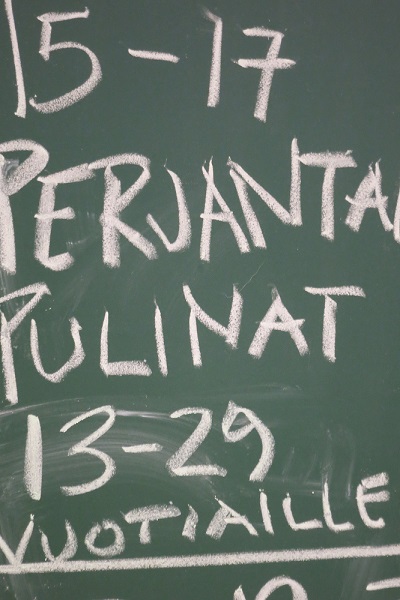 15-17
PERJANTAI
PULINAT
13-29
VUOTIAILLE